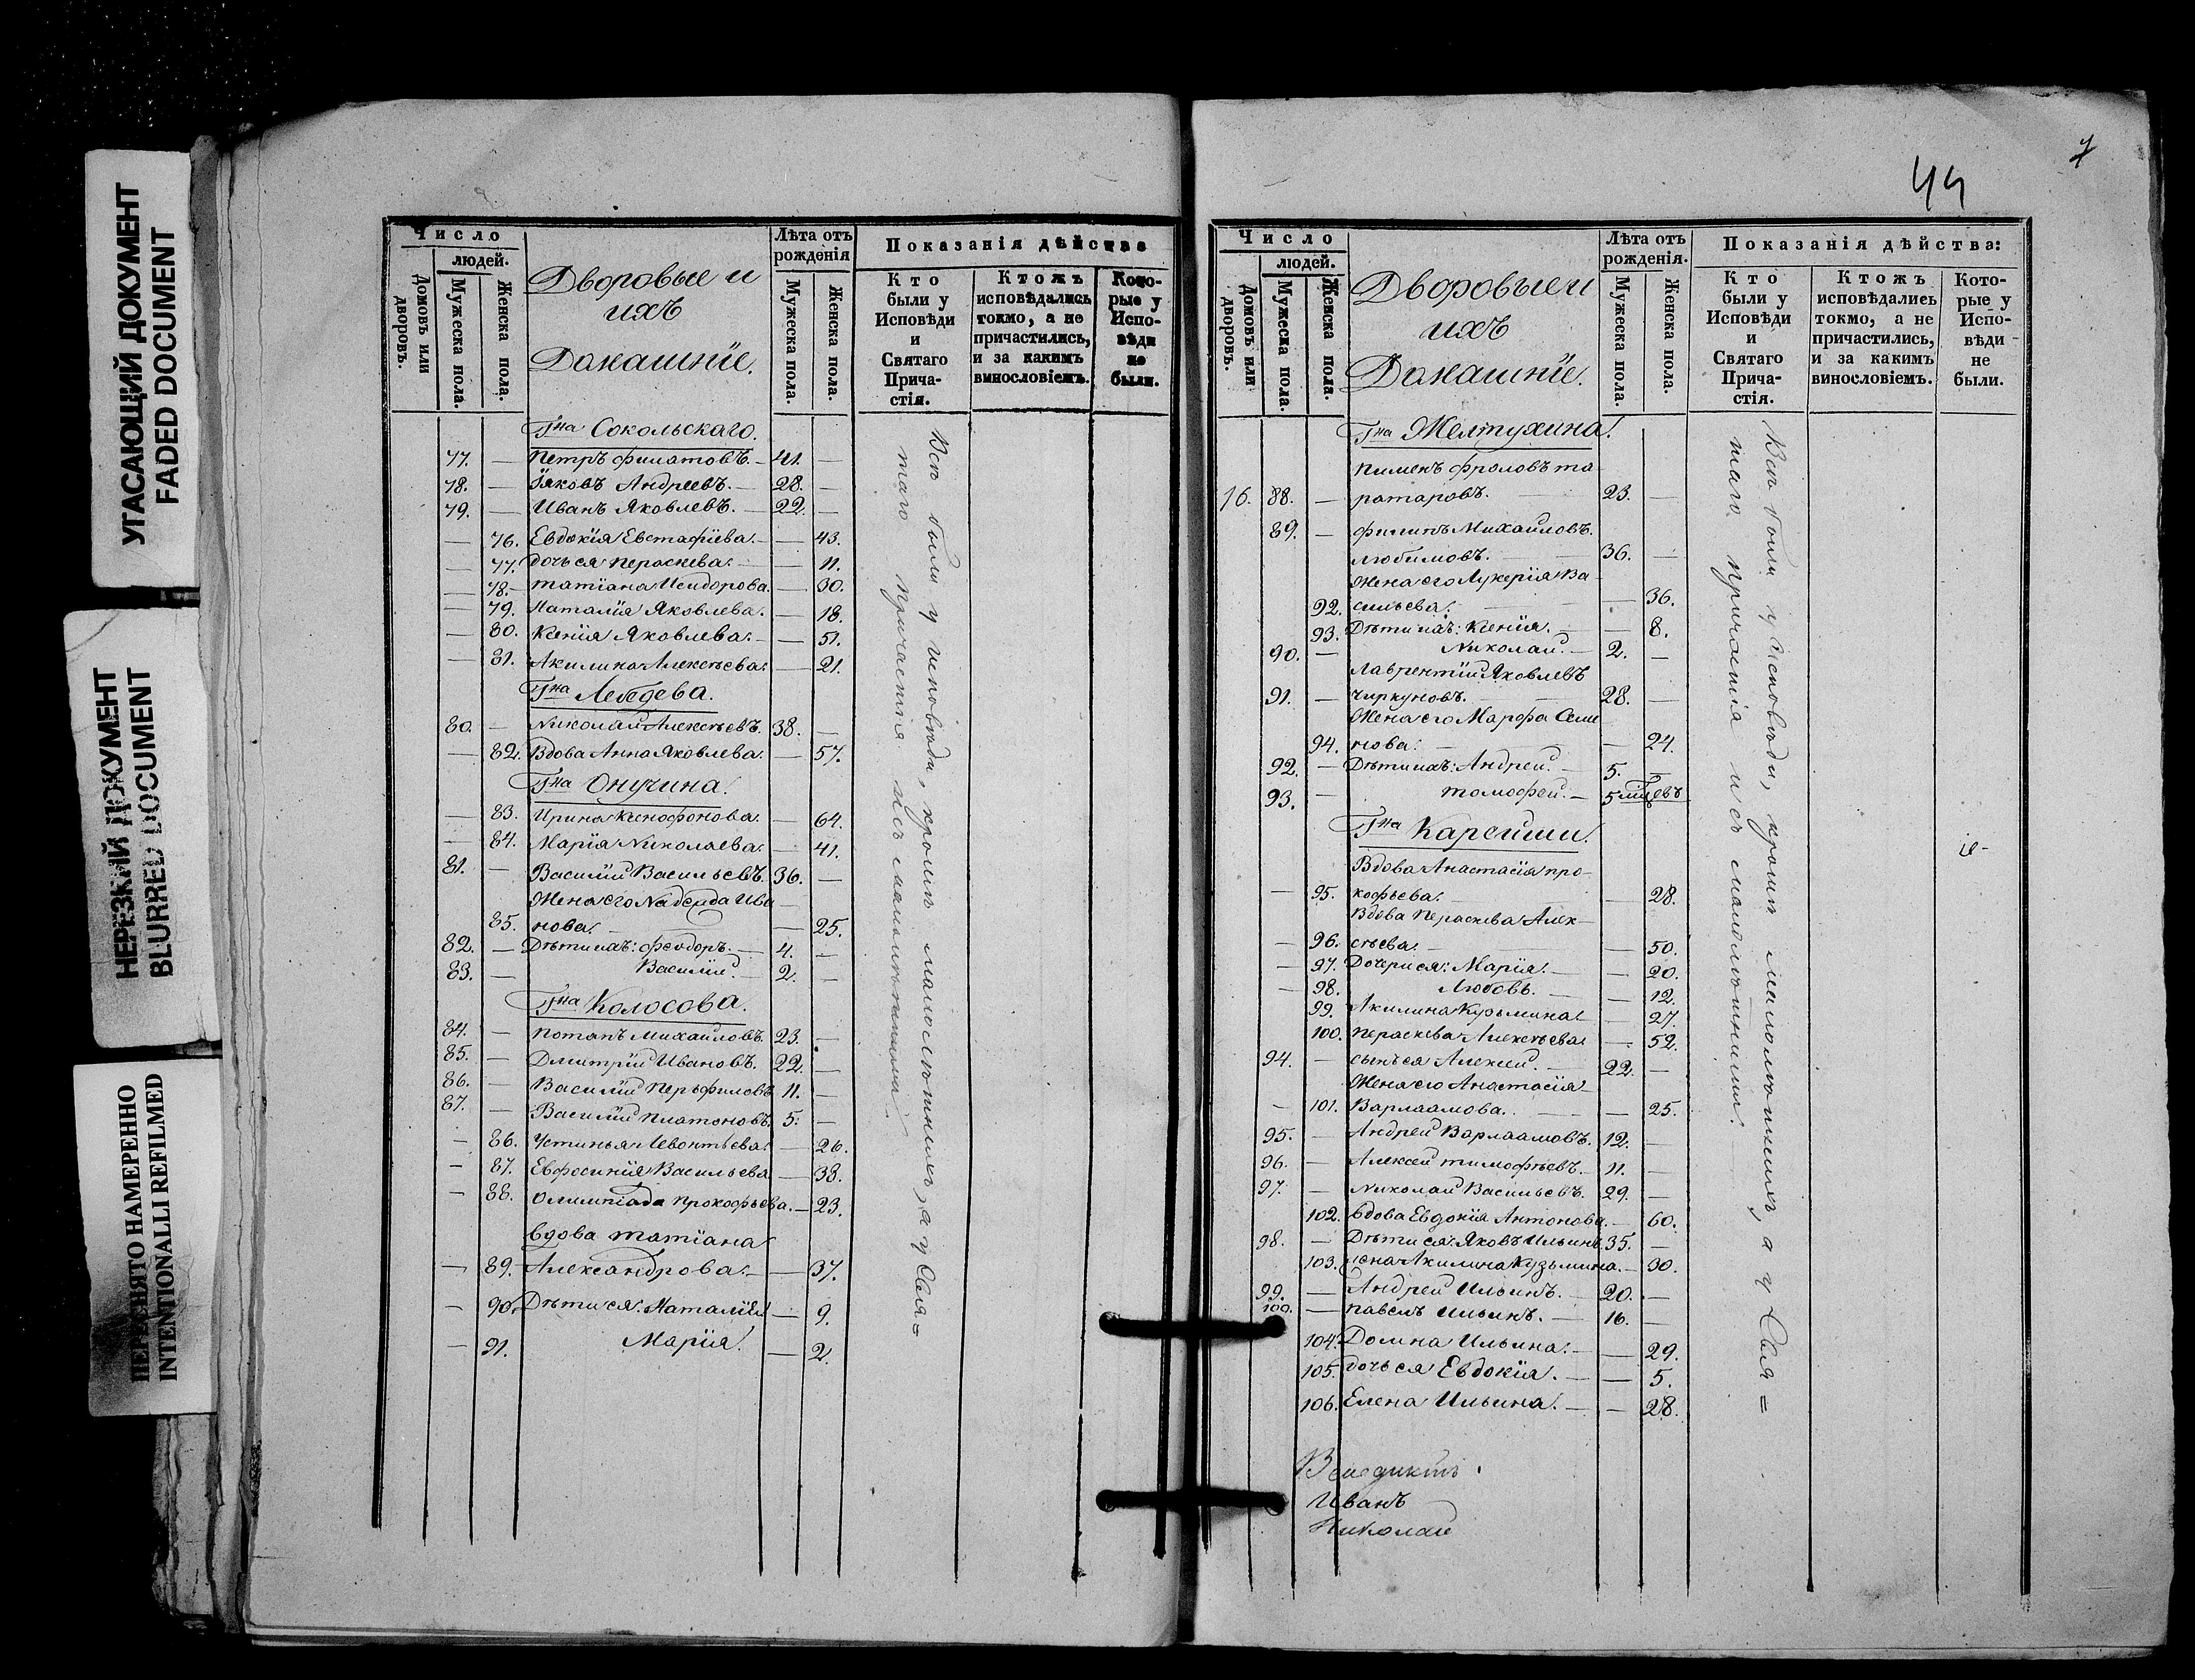 УГАСАЮЩИЙ ДОКУМЕНТ
FADED DOCUMENT
НЕРЕЗКИЙ ДОКУМЕНТ
BLURRED DOCUMENT
ПЕРЕСНЯТО НАМЕРЕННО
INTENTIONALLI REFILMED
Число
людей.
Домовъ или дворовъ.
Мужеска пола.
Женска пола.
Дворовые и
ихъ
Домашніе.
Лѣта отъ
рожденія
Мужеска пола.
Женска пола.
Показанія дѣйства
Кто
были у
Исповѣди
и
Святаго
Прича-
стія.
Ктожъ
исповѣдались
токмо, а не
причастились,
и за какимъ
винословіемъ.
Кото-
рые у
Испо-
вѣди
не
были.
Гна Сокольскаго.
77. — Петръ Филатовъ. — 41. —
78. — Іяковъ Андреевъ. — 28. —
79. — Иванъ Яковлевъ. — 22. —
— 76. Евдокія Евстафіева. — — 43.
— 77. дочь ея Пераскева. — — 11.
— 78. Татіана Исидорова. — 30.
— 79. Наталія Яковлева. — 18.
— 80. Ксенія Яковлева. — — 51.
— 81. Акилина Алексѣева. — 21.
Гна Лебедева.
80. — Николай Алексѣевъ. 38. —
— 82. Вдова Анна Яковлева. — 57.
Гна Онучина.
— 83. Ирина Ксенофонова. — 64.
— 84. Марія Николаева. — 41.
81. — Василій Васильевъ. 36. —
Жена его Надежда Ива
85. нова. — — 25.
82. — Дѣти ихъ: Феодоръ. — 4. —
83. — Василій. — 2. —
Гна Колосова.
84. — Потапъ Михайловъ. 23. —
85. — Дмитрій Ивановъ. 22. —
86. — Василій Перьфиловъ 11. —
87. — Василій Платоновъ. 5. —
— 86. Устинья Левонтьева. — 26.
— 87. Евфосинія Васильева — 38.
— 88. Олимпіада Прокофьева. — 23.
вдова Татіана
— 89. Александрова. — — 37.
— 90. Дѣти ея: Наталія — 9.
— 91. Марія. — 2.
Всѣ были у исповѣди, кромѣ малолѣтнихъ, а у Свя=
таго причастія и съ малолѣтними.
44
7
Число
людей.
Домовъ или дворовъ.
Мужеска пола.
Женска пола.
Дворовые и
ихъ
Домашніе.
Лѣта отъ
рожденія.
Мужеска пола.
Женска пола.
Показанія дѣйства:
Кто
были у
Исповѣди
и
Святаго
Прича-
стія.
Ктожъ
исповѣдались
токмо, а не
причастились,
и за какимъ
винословіемъ.
Кото-
рые у
Испо-
вѣди
не
были.
Гна Желтухина.
Пименъ Фроловъ та
16. 88. — ратаровъ. 23. —
89. — Филипъ Михайловъ.
Любимовъ. — 36. —
Жена его Лукерія Ва-
92. сильева. — — 36.
93. Дѣти ихъ: Ксенія. — — 8.
90. — Николай. — 2. —
Лаврентій Яковлевъ
91. — Чиркуновъ. — 28. —
Жена его Марфа Семе
94. нова. — — 24.
92. — Дѣти ихъ: Андрей. — 5. —
93. — Тимофей. — 5 мѣцевъ
Гна Карсиши.
Вдова Анастасія Про-
— 95. кофьева. — 28.
Вдова Пераскева Алек-
— 96. сѣева. — — 50.
— 97. Дочери ея: Марія. — — 20.
— 98. Любовь. — — 12.
99. Акилина Кузьмина — 27.
100. Пераскева Алексѣева — 52.
94. — сынъ ея Алексей. — 22. —
Жена его Анастасія
— 101. Варлаамова. — — 25.
95. — Андрей Варлаамовъ. 12. —
96. — Алексей Тимофѣевъ. — 11. —
97. — Николай Васильевъ. 29. —
102. вдова Евдокія Антонова. — 60.
98. — Дѣти ея: Яковъ Ильинъ. 35. —
103. жена Акилина Кузьмина. — 30.
99. — Андрей Ильинъ. — 20. —
100. — Павелъ Ильинъ. — 16. —
104. Домна Ильина. — — 29.
105. дочь ея Евдокія. — — 5.
106. Елена Ильина. — — 28.
Всѣ были у Исповѣди, кромѣ малолѣтнихъ, а у Свя=
таго причастія и съ малолѣтними.
Венедиктъ
Иванъ
Николай